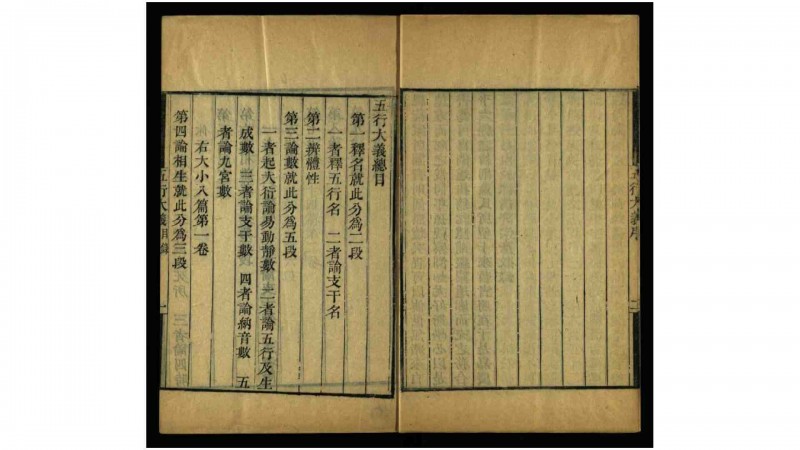 五行大義序
五行大義總目
第一釋名就此分爲二段
一者釋五行名 二者論支干名
第二辨體性
第三論數就此分爲五段
一者起大衍論易動靜數 二者論五行及生
成數 三者論支干數 四者論納音數 五
者論九宮數
右大小八篇第一卷
第四論相生就此分爲三段
五行大義目錄
一